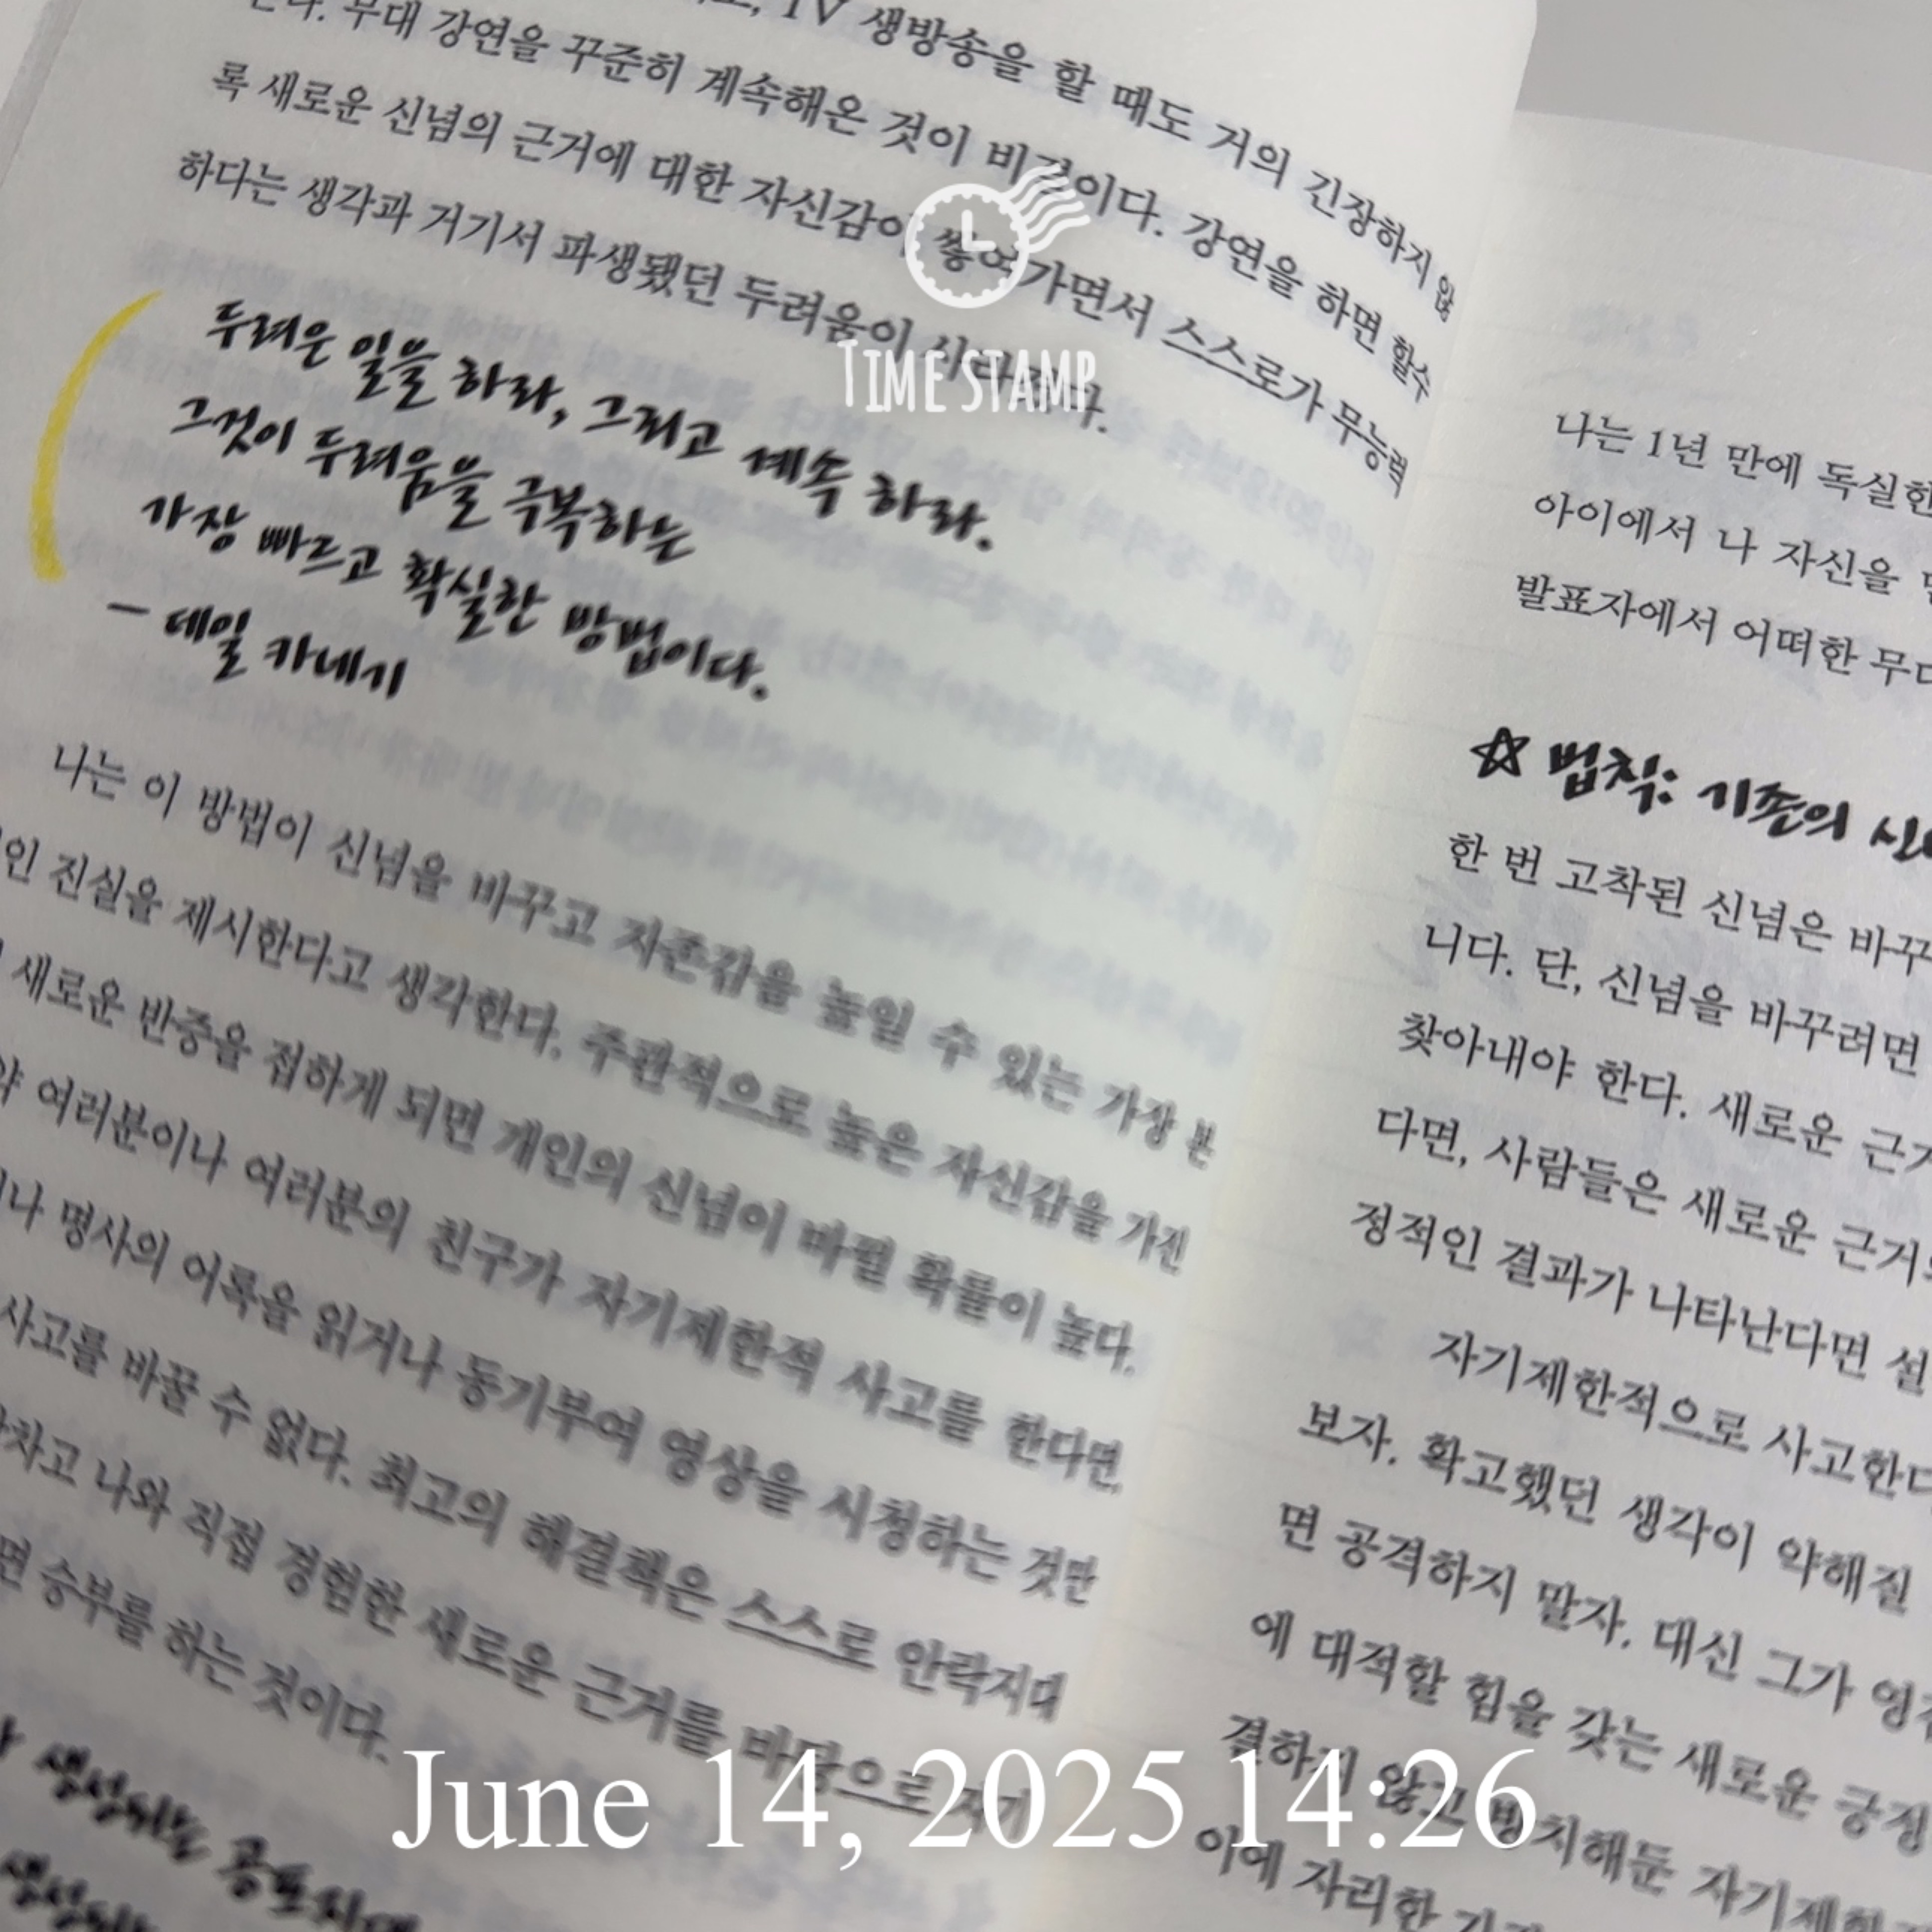 TV 생방송을 할 때도 거의 긴장하지 않
무대 강연을 꾸준히 계속해온 것이 비결이다. 강연을 하면 할수
록 새로운 신념의 근거에 대한 자신감이 쌓여가면서 스스로가 무능력
하다는 생각과 거기서 파생됐던 두려움이 사라졌다.
TIME STAMP
두려운 일을 하라, 그리고 계속 하라.
그것이 두려움을 극복하는
가장 빠르고 확실한 방법이다.
– 데일 카네기
나는 이 방법이 신념을 바꾸고 자존감을 높일 수 있는 가장 본
인 진실을 제시한다고 생각한다. 주관적으로 높은 자신감을 가진
새로운 반증을 접하게 되면 개인의 신념이 바뀔 확률이 높다.
약 여러분이나 여러분의 친구가 자기제한적 사고를 한다면,
나 명사의 어록을 읽거나 동기부여 영상을 시청하는 것만
사고를 바꿀 수 없다. 최고의 해결책은 스스로 안락지대
차고 나와 직접 경험한 새로운 근거를 바탕으로 자기
면 승부를 하는 것이다.
생성되는 공포지대
생성되는
나는 1년 만에 독실한
아이에서 나 자신을
발표자에서 어떠한 무대
☆ 법칙: 기존의 신념
한 번 고착된 신념은 바꾸
니다. 단, 신념을 바꾸려면
찾아내야 한다. 새로운 근거
다면, 사람들은 새로운 근거
정적인 결과가 나타난다면 설
자기제한적으로 사고한다
보자. 확고했던 생각이 약해질
면 공격하지 말자. 대신 그가
에 대적할 힘을 갖는 새로운 긍정
결하지 않고 방치해둔 자기제한
이에 자리한
June 14, 2025 14:26